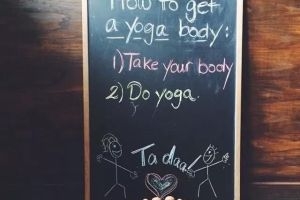 How to get
a yoga body:
1) Take your body
2) Do yoga.
Ta daa!